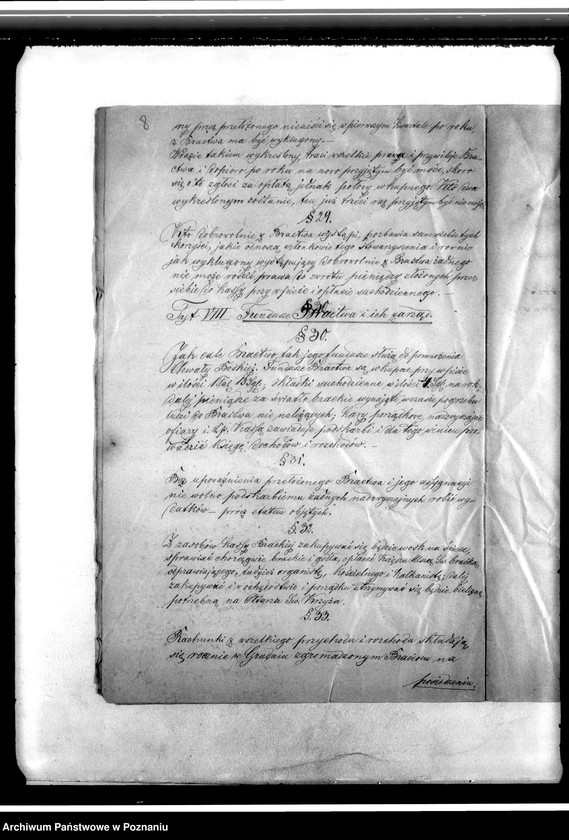 8
ny przez przełożonego nieuiści się w pierwszym kwartale po roku,
z Bractwa ma być wykluczony.—
W razie takiem wykreślony, traci wszelkie prawa i przywileje Bra-
ctwa i dopiero po roku na nowo przyjętym być może, skoro
się o to zgłosi za opłatą jednak połowy wkupnego. Kto dwa
wykreślonym zostanie, ten już trzeci raz przyjętym być nie może.
§ 29.
Kto dobrowolnie z Bractwa wystąpi, pozbawia sam siebie tych
korzyści, jakie odnoszą członkowie tego stowarzyszenia i równie
jak wykluczony występujący dobrowolnie z Bractwa żadnego
nie może rościć prawa do zwrotu pieniędzy złożonych przez
siebie do kassy przy wpisie i opłacie suchedziennego.
Tyt. VIII. Fundusze Bractwa i ich zarząd.
§ 30.
Jak całe Bractwo, tak jego fundusze służą do pomnożenia
Chwały Boskiej. Fundusze Bractwa są wkupne przy wpisie
w ilości składki suchedzienne w ilości na rok,
dalej pieniądze za światło brackie wynajęte w czasie pogrzebu
ludzi do Bractwa nie należących, kary porządkowe, nadzwyczajne
ofiary i t.p. Kassą zawiaduje podskarbi i dla tego winien pro-
wadzić księgę dochodów i rozchodów.—
§ 31.
Bez upoważnienia przełożonego Bractwa i jego asygnacyi
nie wolno podskarbiemu żadnych nadzwyczajnych robić wy-
datków — prócz etatem objętych.
§. 32.
Z zasobów kassy Brackiej zakupywać się będzie wosk na świece,
sprawiać chorągwie brackie i godła, opłacać Księdza Mszą św. bracką
odprawiającego, tudzież organistę, kościelnego i kalkanistę; dalej
zakupywać i w ochędóstwie i porządku utrzymywać się będzie bieliznę
potrzebną na Ołtarz Św. Krzyża.
§. 33.
Rachunki z wszelkiego przychodu i rozchodu składają
się rocznie w Grudniu zgromadzonym Braciom na
posiedzeniu,
Archiwum Państwowe w Poznaniu